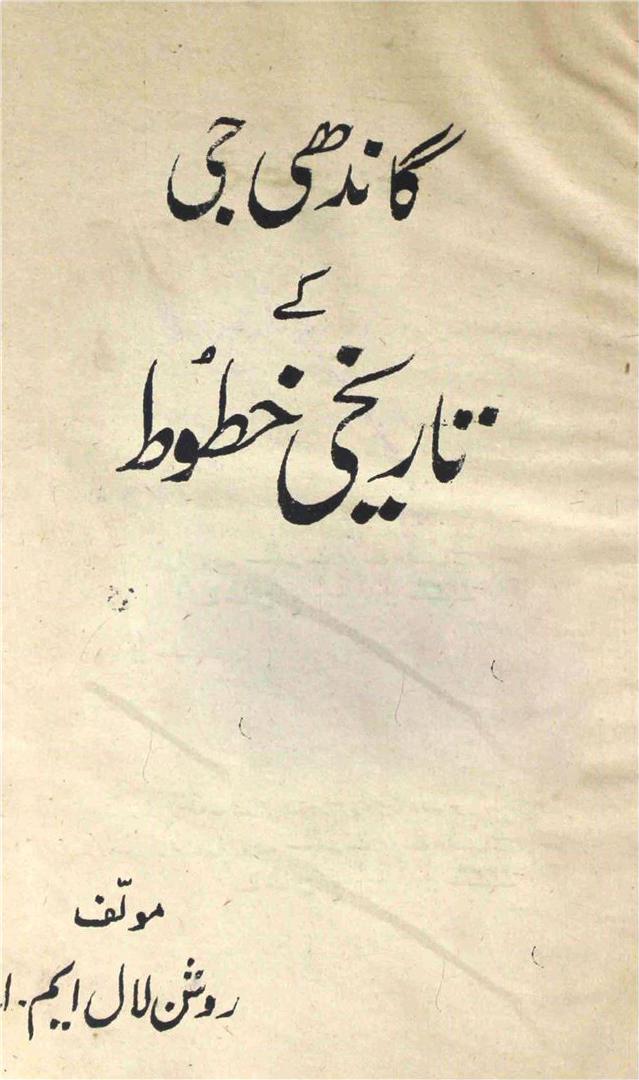 گاندھی جی
کے
تاریخی خطوط
مولّف
روشن لال ایم۔ا